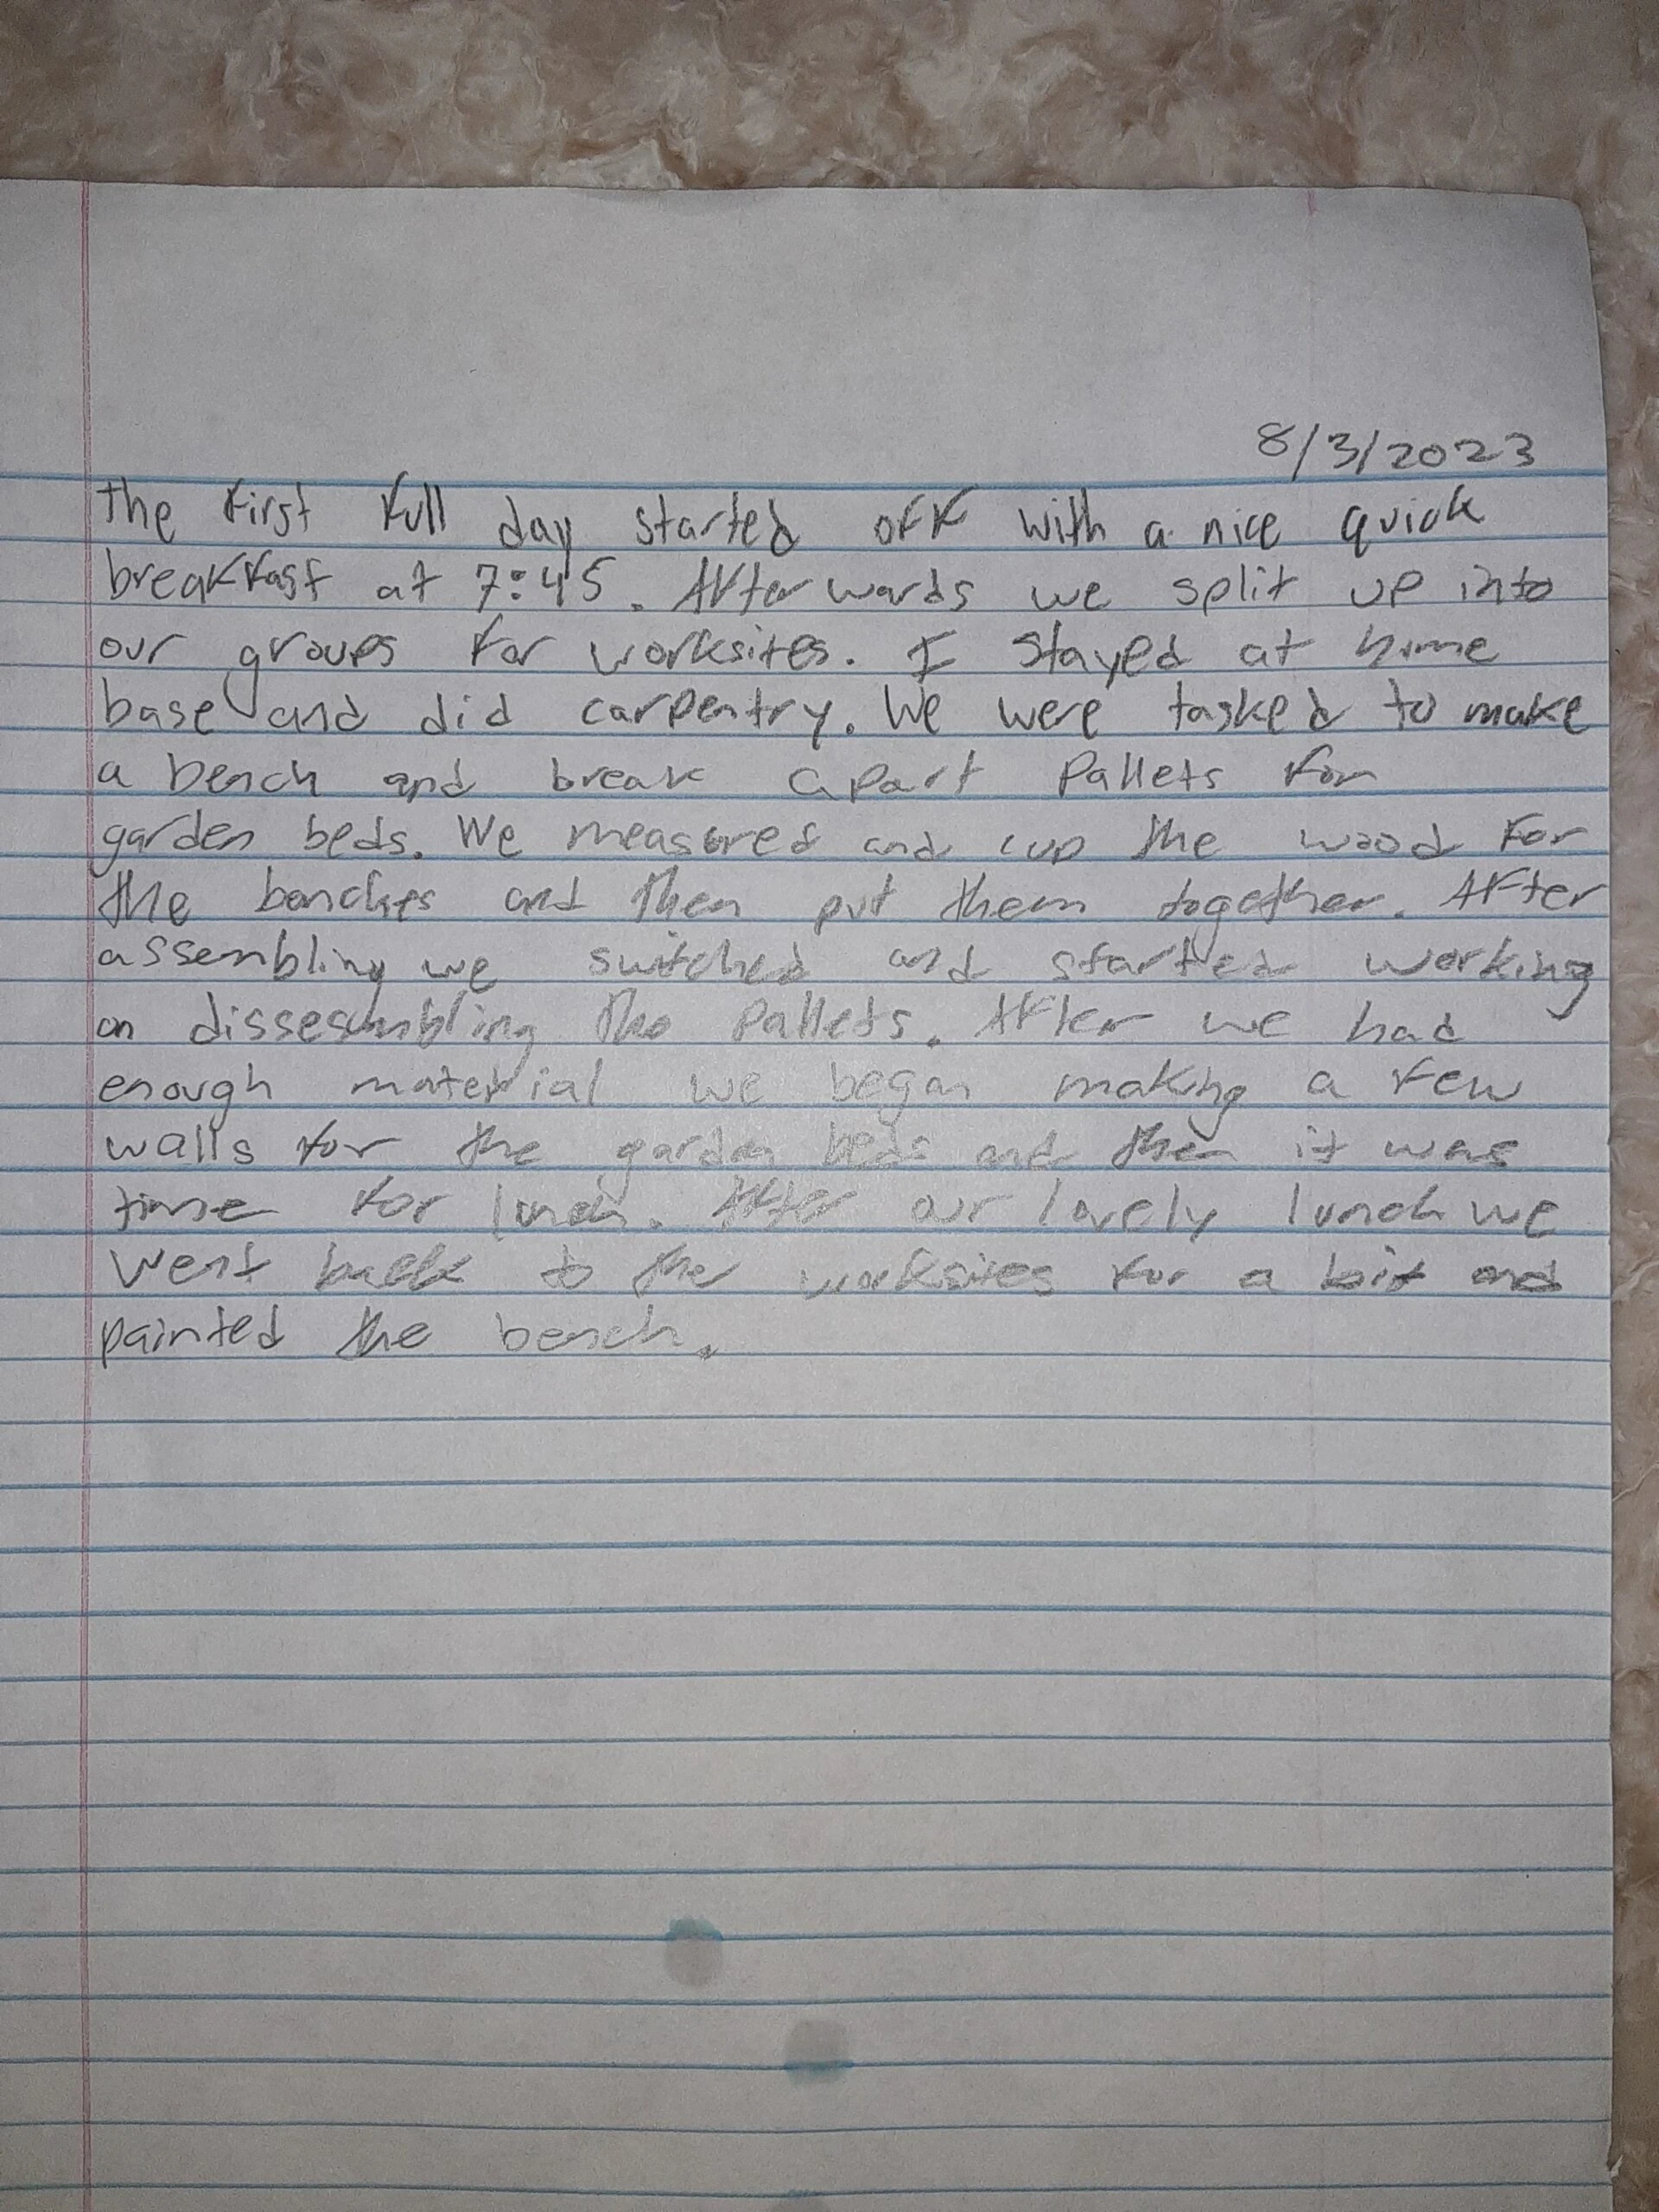 8/3/2023
The first full day started off with a nice quick
breakfast at 7:45. Afterwards we split up into
our groups for worksites. I stayed at home
base and did carpentry. We were tasked to make
a bench and break apart pallets for
garden beds. We measured and cup the wood for
the benches and then put them together. After
assembling we switched and started working
on dissesembling the pallets. After we had
enough material we began making a few
walls for the garden beds and then it was
time for lunch. After our lovely lunch we
went back to the worksites for a bit and
painted the bench.